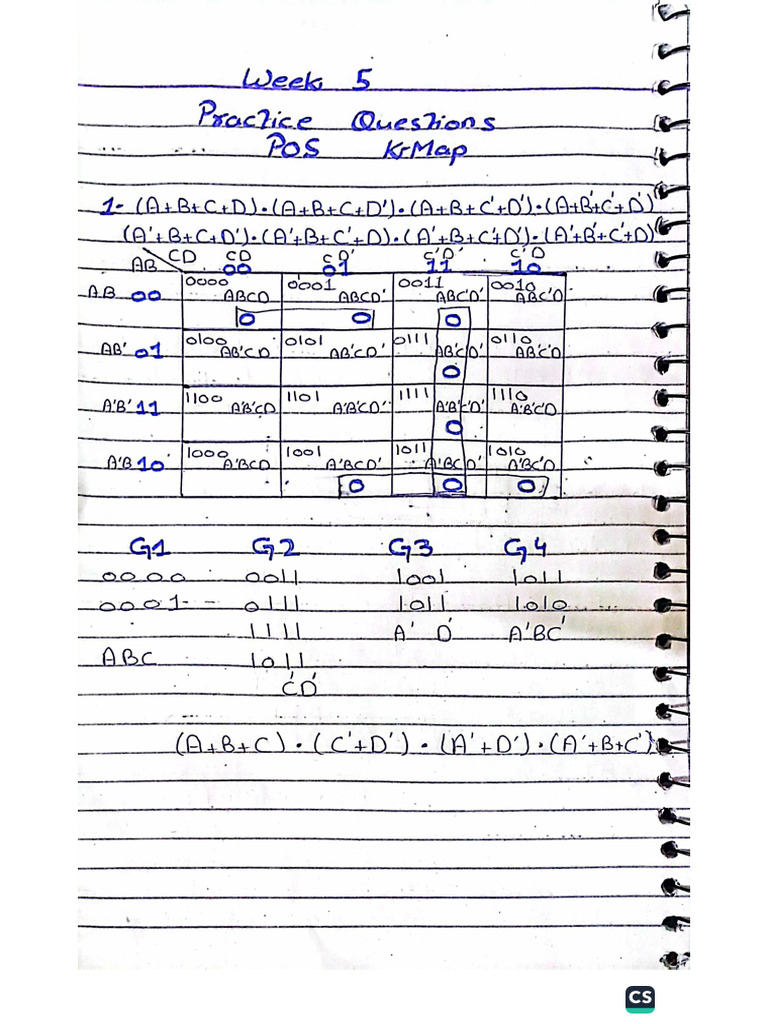 Week 5
Practice Questions
POS KrMap
1- (A+B+C+D)·(A+B+C+D')·(A+B+C'+D')·(A+B'+C'+D')
(A'+B+C+D')·(A'+B+C'+D)·(A'+B+C'+D')·(A'+B'+C'+D)
AB CD CD 00 CD' 01 C'D' 11 C'D 10
AB 00 0000 ABCD 0001 ABCD' 0011 ABC'D' 0010 ABC'D
0 0 0
AB' 01 0100 AB'CD 0101 AB'CD' 0111 AB'C'D' 0110 AB'C'D
0
A'B' 11 1100 A'B'CD 1101 A'B'CD' 1111 A'B'C'D' 1110 A'B'C'D
0
A'B 10 1000 A'BCD 1001 A'BCD' 1011 A'BC'D' 1010 A'BC'D
0 0 0
G1 G2 G3 G4
0000 0011 1001 1011
0001 0111 1011 1010
1111 A' D' A'BC'
ABC 1011
C'D'
(A+B+C)·(C'+D')·(A'+D')·(A'+B+C')
CS